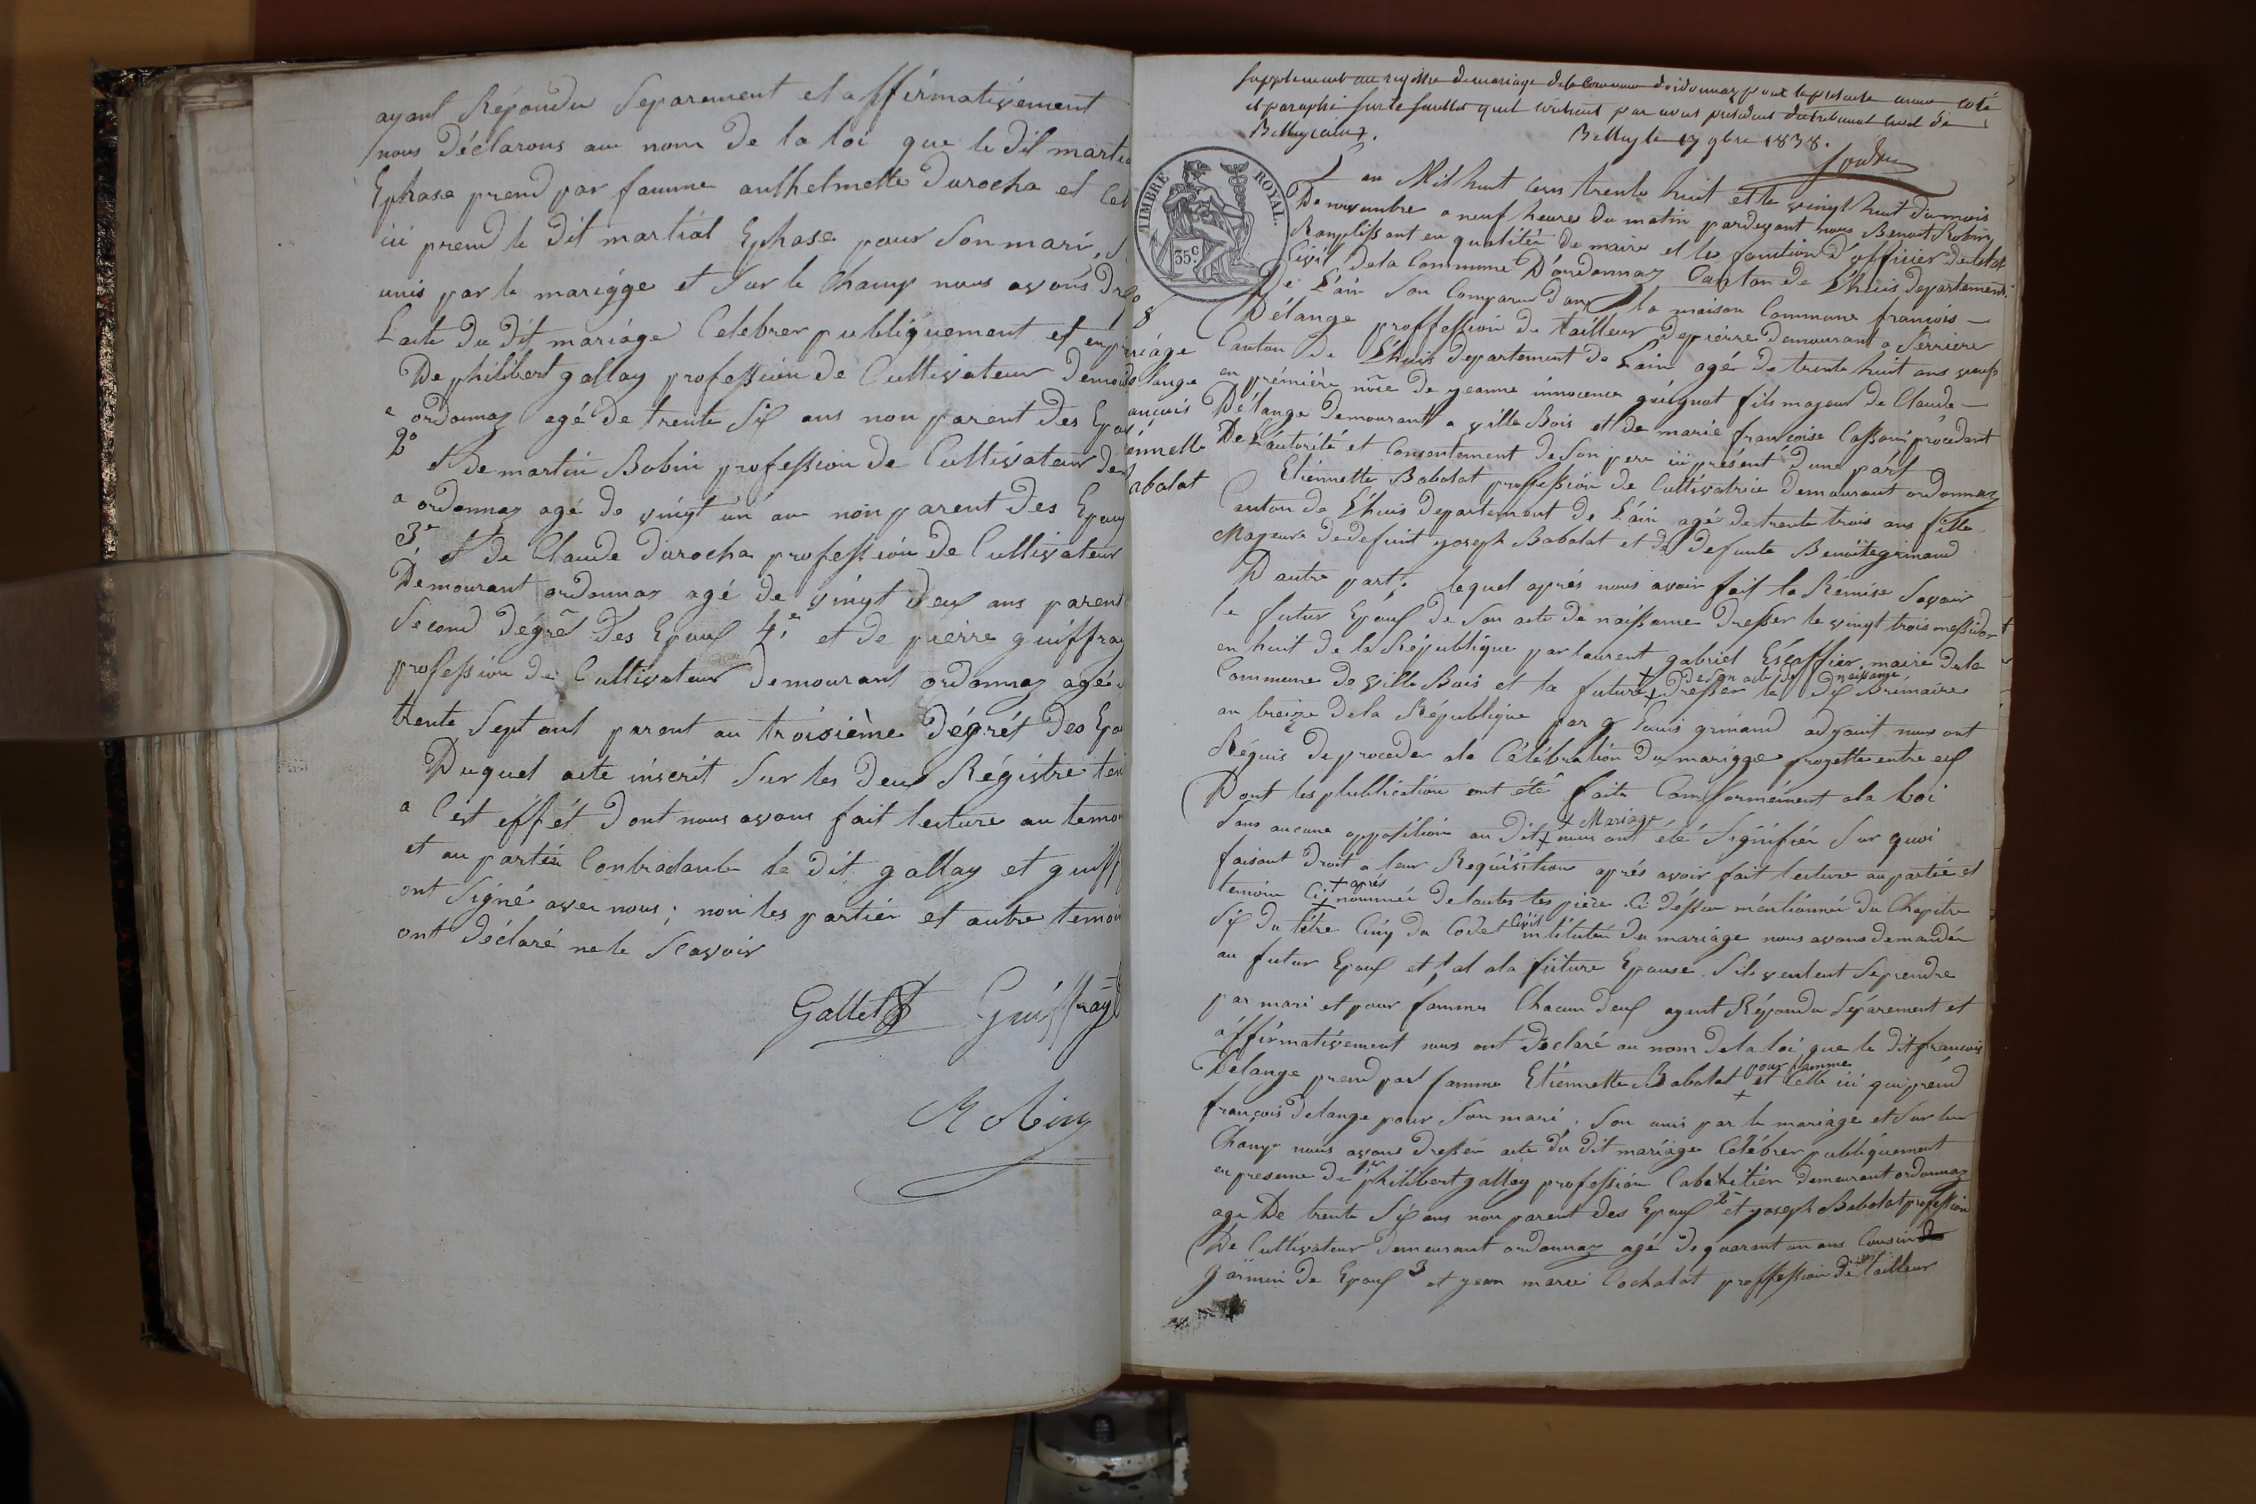 ayant Répondu Séparement et affirmativement
nous Déclarons au nom De la loi que le Dit martia
Ephase prend par famme anthelmette Durocha et Cel
ici prend le Dit martial Ephase pour Son mari, S
unis par le mariage et Sur le Champ nous avons Dre
Lacte Du Dit mariage Celebrer publiquement et en pr
De philibert gallay profession de Cultivateur Demeu
a ordonnaz agé de trente Six ans non parent des Epou
2e et De martin Robin profession de Cultivateur de
a ordonnaz agé de vingt un an non parent des Epoux
3e et de Claude Durocha profession de Cultivateur
Demourant ordonnaz agé de vingt Deux ans parent
Second Dégré Des Epoux 4e et de pierre guiffray
profession de Cultivateur Demourant ordonnaz agé
trente Sept ans parent au troisième Dégrét Des Epo
Duquel acte inscrit Sur les Deux Régistre ten
a C'est effét Dont nous avons fait lecture au temoi
et au partié Contradante le Dit gallay et guiff
ont Signé avec nous; non les partiér et autre temoin
ont Déclaré ne le Scavoir
Gallet Guiffray
Robin
Supplement au registre de mariage de la Commune d'ordonnaz pour la présente année coté
et paraphé sur le feuillet qu'il contient par nous président du tribunal civil de
Belley
Belley le 17 9bre 1838.
TIMBRE ROYAL
35 c
8
riáge
elange
ançois
ennette
abalat
L'an Mil huit Cens trente huit et le vingt huit du mois
De novembre a neuf heures du matin pardevant nous Benoit Robin
Remplissant en qualitée de maire et les fonction D'officier de letat
Civil De la Commune D'ordonnaz Canton de L'huis departement
De L'ain Son Comparu Dans la maison Commune francois
Délange proffession de tailleur De pierre Demourant a Serriere
Canton de L'huis departement de L'ain agé de trente huit ans veuf
en prémière nôce de jeanne innocence guignot fils majeur de Claude
Délange Demourant a ville Bois et de marie françoise Cassoni procédant
De L'autorité et Consentement de Son pere ici présent d'une part
Etiennette Babolat proffession de Cultivatrice Demourant ordonnaz
Canton de L'huis Departement de L'ain agé de trente trois ans fille
Majeure De defunt joseph Babolat et de Defunte Benoite grimaud
D'autre part; lequel aprés nous avoir fait la Rémise Savoir
le futur Epoux de Son acte de naissance Dresser le vingt trois messidor
en huit de la République par laurent gabriel Escoffier, maire de la
Commune de ville Bois et la future + de Son acte de naissance Dresser le Dix Brimaire
an treize De la République par Louis grimaud adjoint nous ont
Réquis De proceder a la Célébration Du mariage projetté entre eux
Dont les publication ont été faite Comformément a la Loi
Sans aucune opposition au Dit + Mariage nous ont été Signifier Sur quoi
faisant Droit a leur Requisition aprés avoir fait lecture au partié et
temoin Ci + aprés nommée De toutes les pièce Ci déssu méntionnée Du Chapitre
Six Du titre Cinq Du Code Civil intitulée Du mariage nous avons demander
au futur Epoux et a la future Epouse S'ils veulent Se prendre
par mari et pour famme Chacun Deux ayant Répondu Séparement et
affirmativement nous ont Declaré au nom De la loi que le Dit francois
Délange prend part famme Etiennette Babolat + pour famme et Celle ici que prend
françois Delange pour Son mari, Son unis par le mariage et Sur leu
Champ nous avons Dressér acte du Dit mariage Célébrer publiquement
en presence De 1er philibert gallay profession Cabaritier demeurant ordonnaz
agé De trente Six ans non parent des Epoux 2e et joseph Babolat profession
De Cultivateur Demeurant ordonnaz agé De quarant un ans Cousin
germin De Epoux 3 et jean marie Cochalat proffession de tailleur